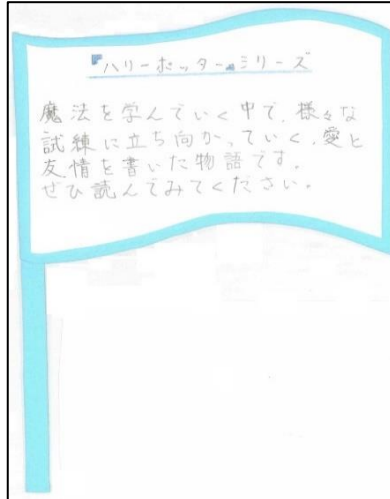 『ハリーポッター』シリーズ
魔法を学んでいく中で、様々な
試練に立ち向かっていく、愛と
友情を書いた物語です。
ぜひ読んでみてください。